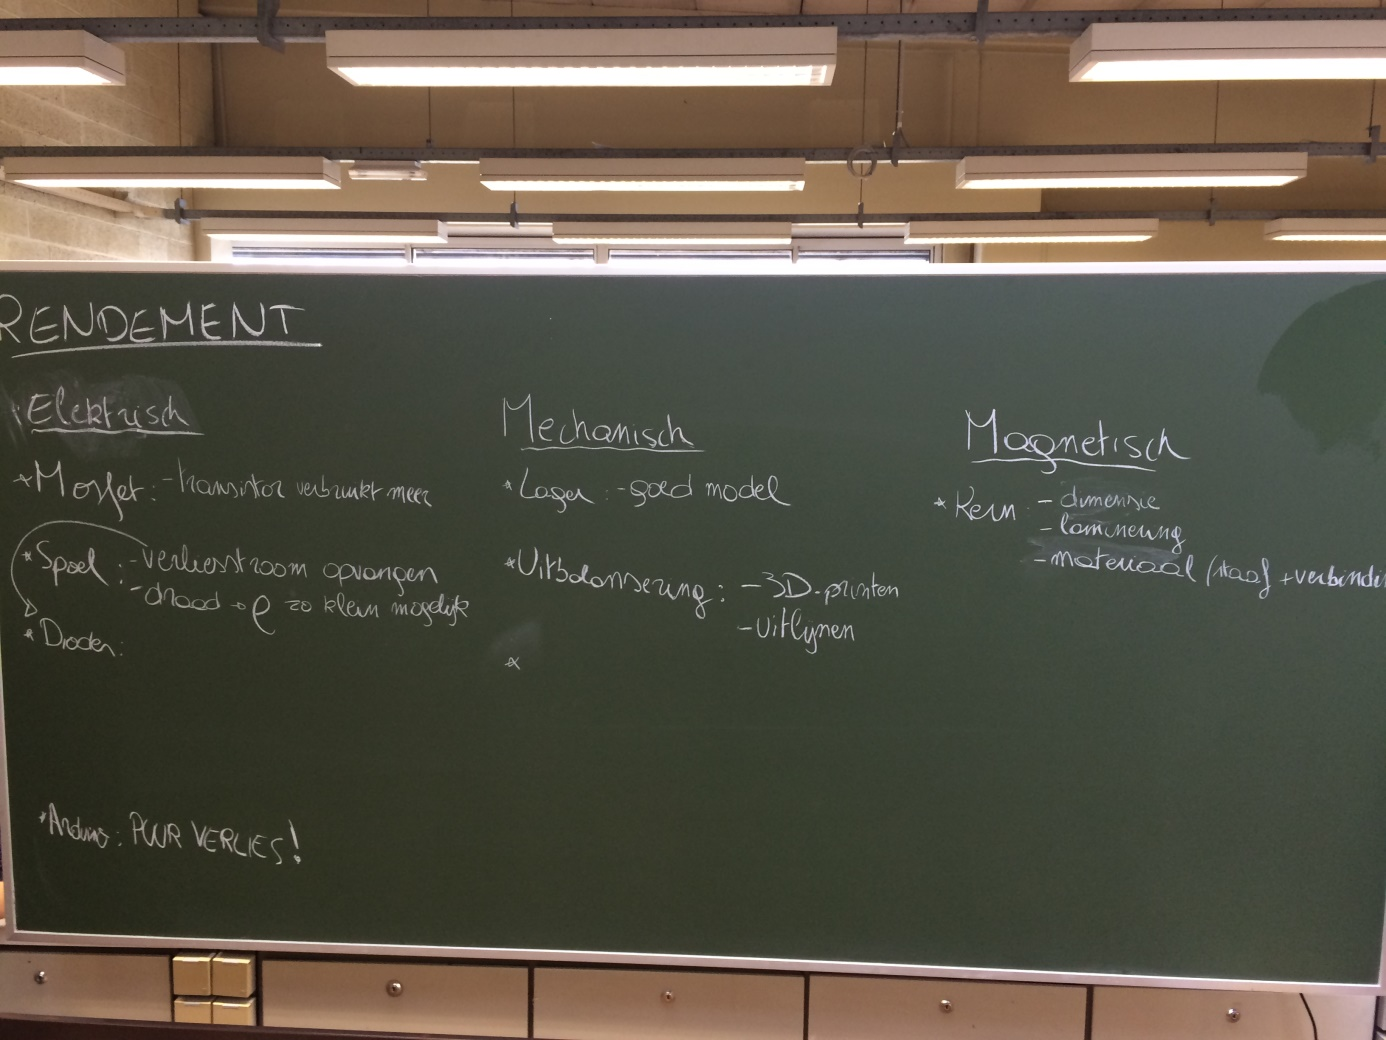 RENDEMENT
Elektrisch
* Mosfet: - transistor verbruikt meer
* Spoel: - verliesstroom opvangen
- draad → ρ zo klein mogelijk
* Dioden:
* Arduino: PUUR VERLIES!
Mechanisch
* Lager: - goed model
* Uitbalansering: - 3D-printen
- uitlijnen
*
Magnetisch
* Kern - dimensie
- laminering
- materiaal (staaf + verbindi